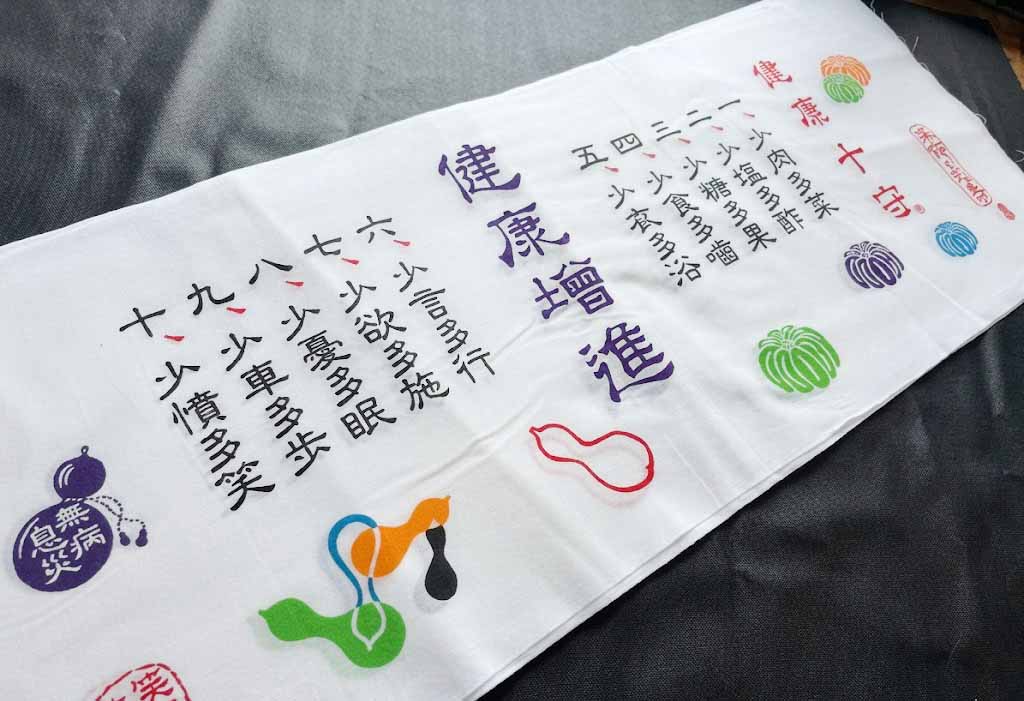 健康十守
一、少肉多菜
二、少塩多酢
三、少糖多果
四、少食多噛
五、少衣多浴
健康増進
六、少言多行
七、少欲多施
八、少憂多眠
九、少車多歩
十、少憤多笑
無病
息災
笑